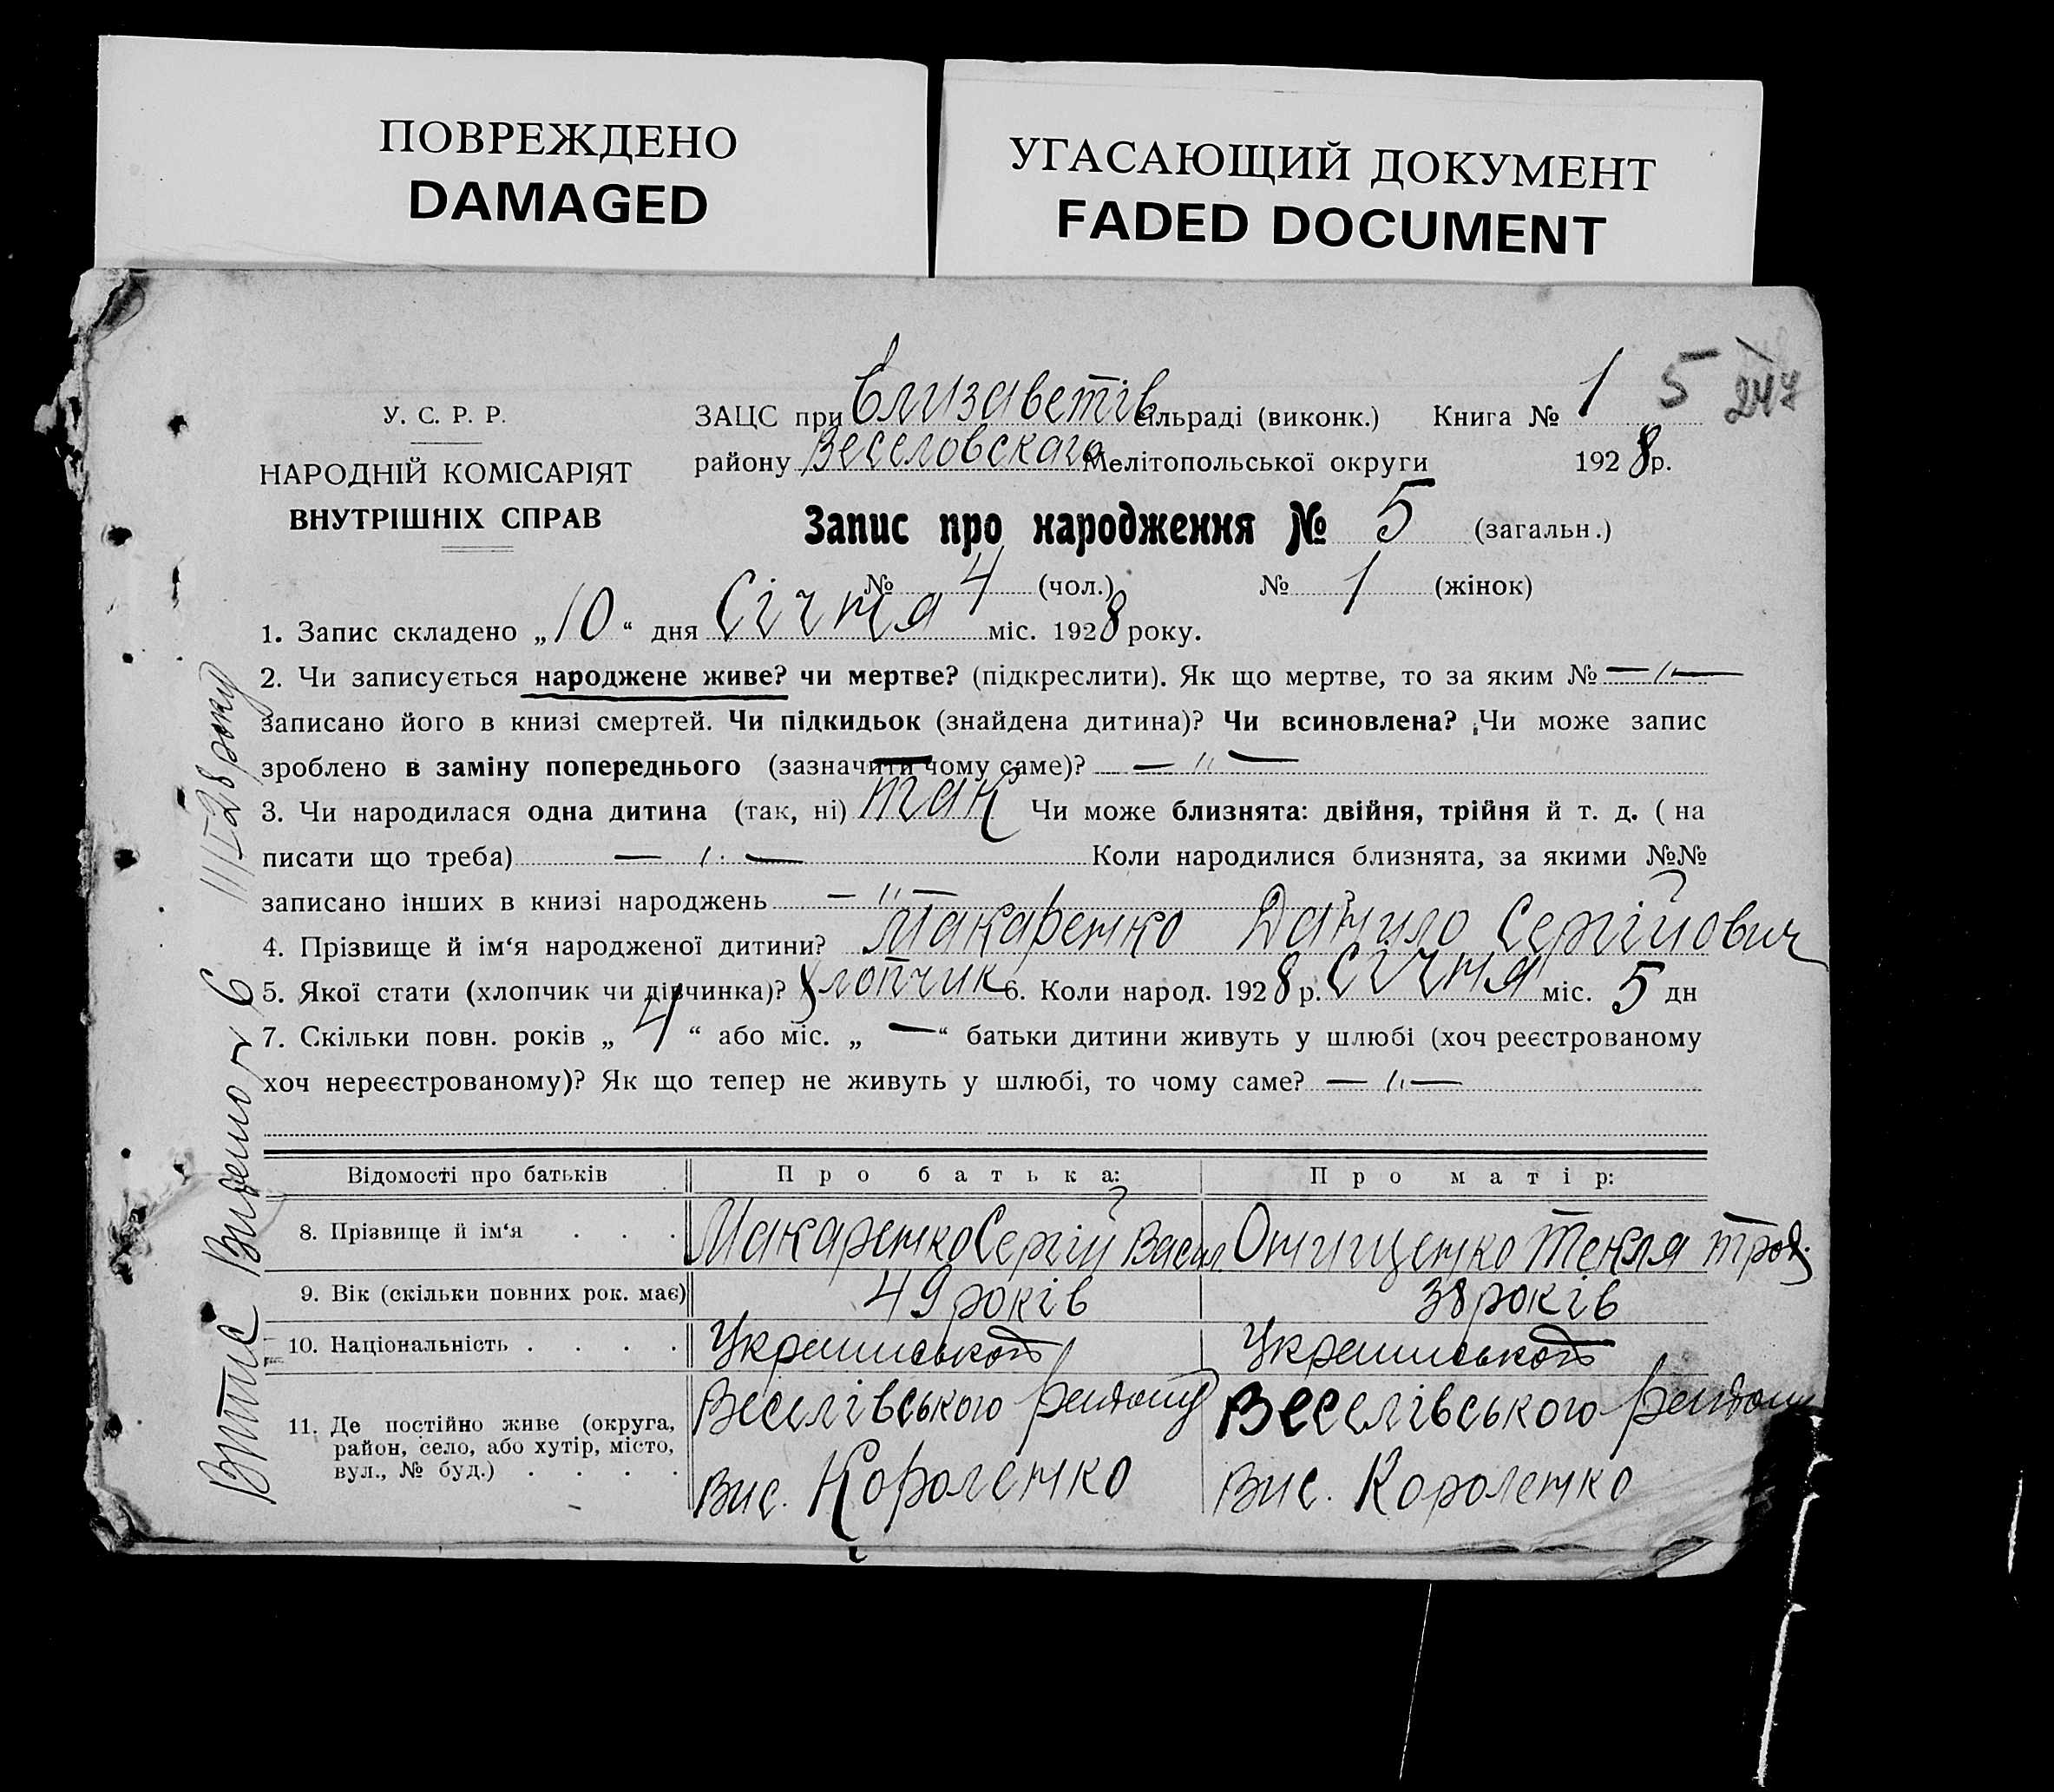 ПОВРЕЖДЕНО
DAMAGED
УГАСАЮЩИЙ ДОКУМЕНТ
FADED DOCUMENT
5 247
У. С. Р. Р.
НАРОДНІЙ КОМІСАРІЯТ
ВНУТРІШНІХ СПРАВ
ЗАЦС при Єлизаветів сільраді (виконк.) Книга № 1
району Веселовскаго Мелітопольської округи 1928 р.
Запис про народження № 5 (загальн.)
№ 4 (чол.) № 1 (жінок)
1. Запис складено „10“ дня Січня міс. 1928 року.
2. Чи записується народжене живе? чи мертве? (підкреслити). Як що мертве, то за яким № — „ —
записано його в книзі смертей. Чи підкидьок (знайдена дитина)? Чи всиновлена? Чи може запис
зроблено в заміну попереднього (зазначити чому саме)? — „ —
3. Чи народилася одна дитина (так, ні) так Чи може близнята: двійня, трійня й т. д. ( на
писати що треба) — „ — Коли народилися близнята, за якими №№
записано інших в книзі народжень — „ —
4. Прізвище й ім‘я народженої дитини? Макаренко Данило Сергійович
5. Якої стати (хлопчик чи дівчинка)? Хлопчик 6. Коли народ. 1928 р. Січня міс. 5 дн
7. Скільки повн. років „ 4 “ або міс. „ — “ батьки дитини живуть у шлюбі (хоч реєстрованому
хоч нереєстрованому)? Як що тепер не живуть у шлюбі, то чому саме? — „ —
Відомості про батьків Про батька: Про матір:
8. Прізвище й ім‘я . . . Макаренко Сергій Васил. Онищенко Текля Троф.
9. Вік (скільки повних рок. має) 49 років 38 років
10. Національність . . . . Української Української
11. Де постійно живе (округа, район, село, або хутір, місто, вул., № буд.) . . . .
Веселівського району Вис. Короленко
Веселівського району Вис. Короленко
Витяг Видано № 6 11/I 28 року